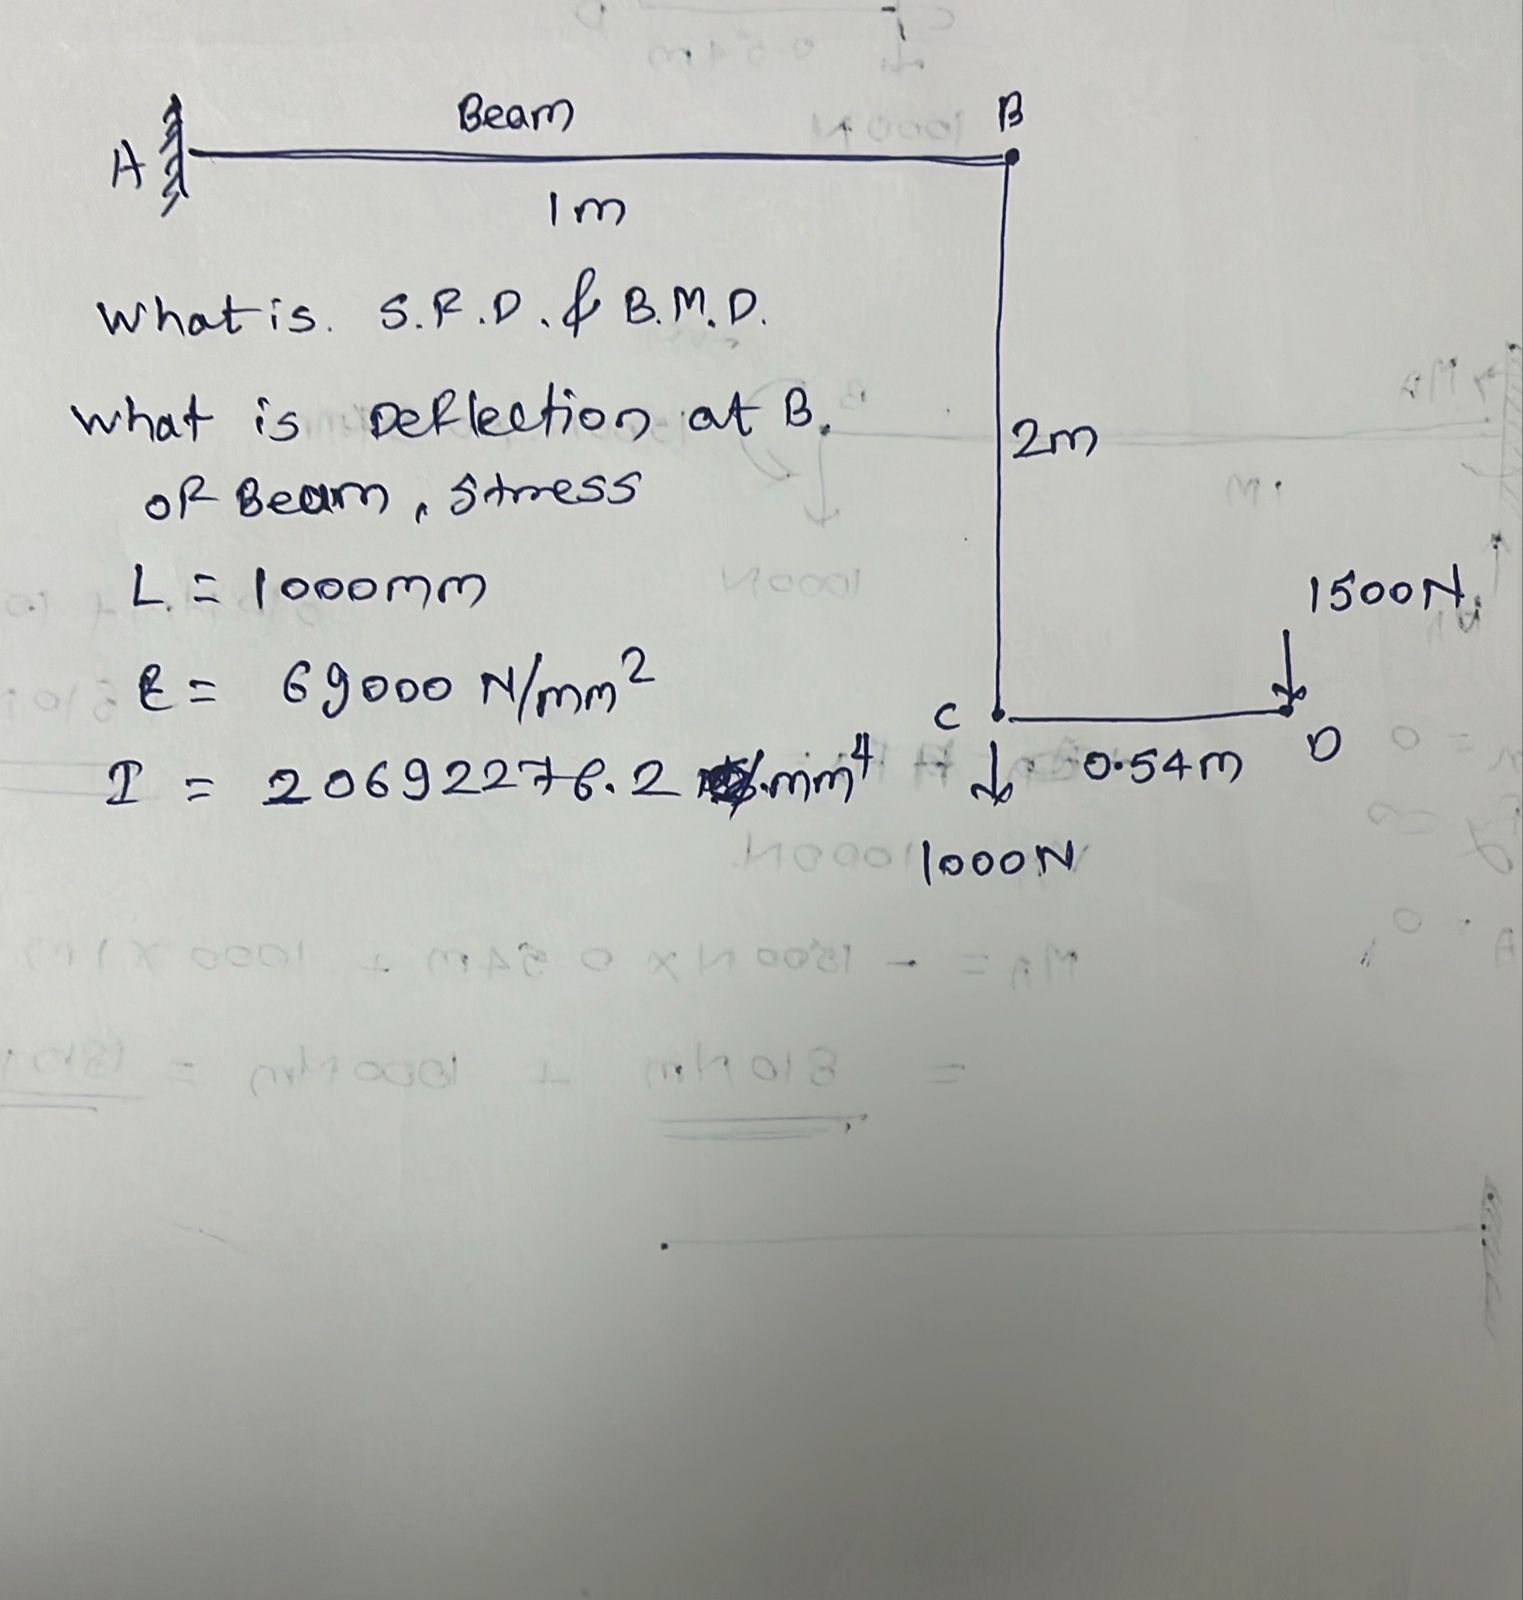 Beam
A
B
1m
What is. S.F.D. & B.M.D.
What is Deflection at B.
of Beam, Stress
2m
L = 1000mm
1500N
E = 69000 N/mm²
C
D
0.54m
I = 20692276.2 mm⁴
1000N